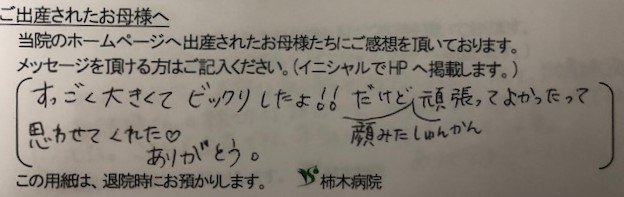 ご出産されたお母様へ
当院のホームページへ出産されたお母様たちにご感想を頂いております。
メッセージを頂ける方はご記入ください。(イニシャルでHPへ掲載します。)
すっごく大きくて ビックリしたよ!! だけど 頑張ってよかったって
顔みたしゅんかん
思わせてくれた♡
ありがとう。
この用紙は、退院時にお預かりします。 柿木病院